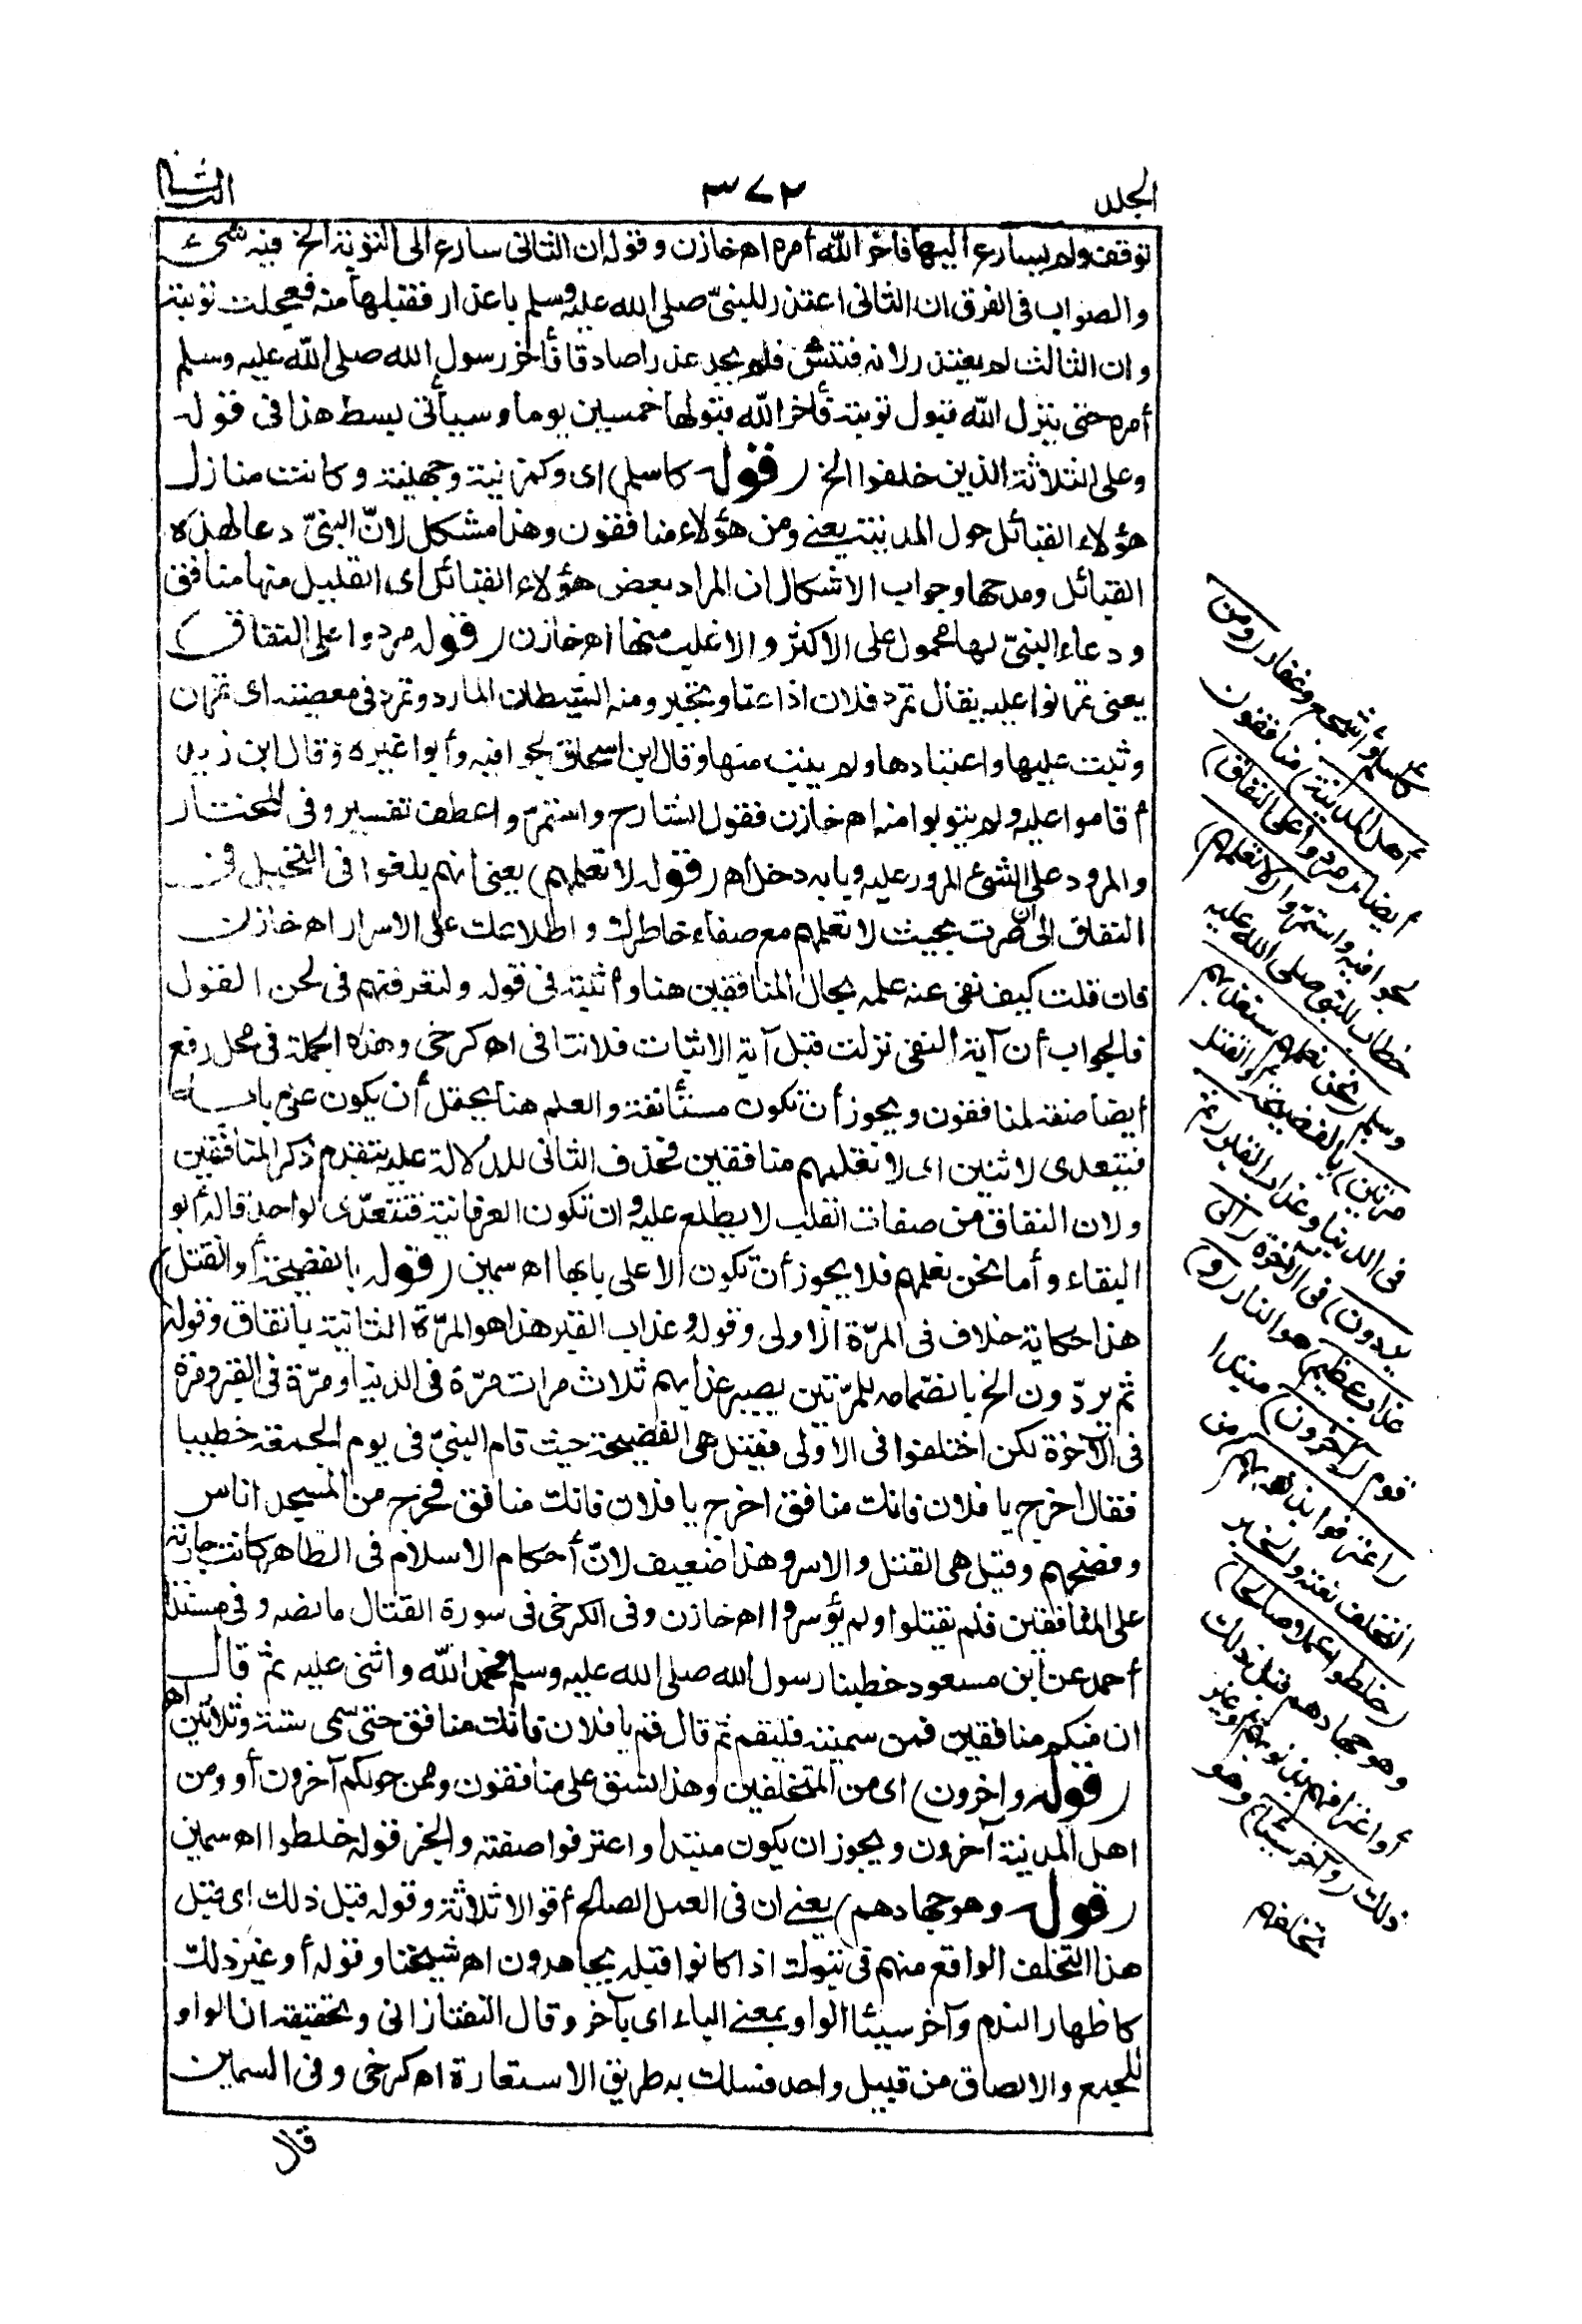 الجلد
٣٧٢
الثانى
توقف ولم يسارع اليها فأخر الله أمره اه خازن وقوله ان الثانى سارع الى التوبة الخ فيه شىء
والصواب فى الفرق ان الثانى اعتذر للنبىّ صلى الله عليه وسلم باعذار فقبلها منه فعجلت توبته
وان الثالث لم يعتذر لانه فتش فلم يجد عذرا صادقا فأخر رسول الله صلى الله عليه وسلم
أمره حتى ينزل الله قبول توبته فأخر الله قبولها خمسين يوما وسيأتى بسط هذا فى قوله
وعلى الثلاثة الذين خلفوا الخ (قوله كاسلم) اى وكمزينة وجهينة وكانت منازل
هؤلاء القبائل حول المدينة يعنى ومن هؤلاء منافقون وهذا مشكل لانّ النبىّ دعا لهذه
القبائل ومدحها وجواب الاشكال ان المراد بعض هؤلاء القبائل اى القليل منها منافق
ودعاء النبىّ لها محمول على الاكثر والاغلب منها اه خازن (قوله مردوا على النفاق)
يعنى تمرنوا عليه يقال تمرد فلان اذا عتا وتجبر ومنه الشيطان المارد وتمرد فى معصيته اى تمرن
وثبت عليها واعتادها ولم يتب منها وقال ابن اسحاق لجوا فيه وأبوا غيره وقال ابن زيد
أقاموا عليه ولم يتوبوا منه اه خازن فقول الشارح واستمرّوا عطف تفسير وفى المختار
والمرود على الشىء المرور عليه وبابه دخل اه (قوله لا تعلمهم) يعنى أنهم بلغوا فى التخيل فى
النفاق الى ان صرت بحيث لا تعلمهم مع صفاء خاطرك واطلاعك على الاسرار اه خازن
فان قلت كيف نفى عنه علمه بحال المنافقين هنا وأثبته فى قوله ولتعرفنهم فى لحن القول
فالجواب أن آية النفى نزلت قبل آية الاثبات فلا تنافى اه كرخى وهذه الجملة فى محل رفع
أيضا صفة لمنافقون ويجوز أن تكون مستأنفة والعلم هنا يحتمل أن يكون على بابه
فيتعدى لاثنين اى لا تعلمهم منافقين فحذف الثانى للدلالة عليه بتقدم ذكر المنافقين
ولان النفاق من صفات القلب لا يطلع عليه وان تكون العرفانية فتتعدّى لواحد قاله أبو
البقاء وأما نحن نعلمهم فلا يجوز أن تكون الا على بابها اه سمين (قوله بالفضيحة أو القتل)
هذا حكاية خلاف فى المرّة الاولى وقوله وعذاب القبر هذا هو المرّة الثانية باتفاق وقوله
ثم يردّون الخ بانضمامه للمرّتين يصير عذابهم ثلاث مرات مرّة فى الدنيا ومرّة فى القبر ومرة
فى الآخرة لكن اختلفوا فى الاولى فقيل هى الفضيحة حيث قام النبىّ فى يوم الجمعة خطيبا
فقال اخرج يا فلان فانك منافق اخرج يا فلان فانك منافق فخرج من المسجد اناس
وفضحهم وقيل هى القتل والاسر وهذا ضعيف لانّ أحكام الاسلام فى الظاهر كانت جارية
على المنافقين فلم يقتلوا ولم يؤسروا اه خازن وفى الكرخى فى سورة القتال ما نصه وفى مسند
أحمد عن ابن مسعود خطبنا رسول الله صلى الله عليه وسلم فحمد الله واثنى عليه ثم قال
ان فيكم منافقين فمن سميته فليقم ثم قال قم يا فلان فانك منافق حتى سمى ستة وثلاثين اه
(قوله وآخرون) اى من المتخلفين وهذا نسق على منافقون وممن حولكم آخرون أو ومن
اهل المدينة آخرون ويجوز ان يكون مبتدأ واعترفوا صفته والخبر قوله خلطوا اه سمين
(قوله وهو جهادهم) يعنى ان فى العمل الصالح أقوالا ثلاثة وقوله قبل ذلك اى قبل
هذا التخلف الواقع منهم فى تبوك اذ كانوا قبله يجاهدون اه شيخنا وقوله أو غير ذلك
كاظهار الندم وآخر سيئا الواو بمعنى الباء اى بآخر وقال التفتازانى وتحقيقه ان الواو
للجمع والالصاق من قبيل واحد فسلك به طريق الاستعارة اه كرخى وفى السمين
قال
كاسلم وأشجع وغفار (ومن
أهل المدينة) منافقون
أيضا (مردوا على النفاق)
لجوا فيه واستمرّوا (لا تعلمهم)
خطاب للنبى صلى الله عليه
وسلم (نحن نعلمهم سنعذبهم
مرّتين) بالفضيحة أو القتل
فى الدنيا وعذاب القبر (ثم
يردّون) فى الآخرة (الى
عذاب عظيم) هو النار (و)
قوم (آخرون) مبتدا
(اعترفوا بذنوبهم) من
التخلف نعته والخبر
(خلطوا عملا صالحا)
وهو جهادهم قبل ذلك
أو اعترافهم بذنوبهم أو غير
ذلك (وآخر سيئا) وهو
تخلفهم